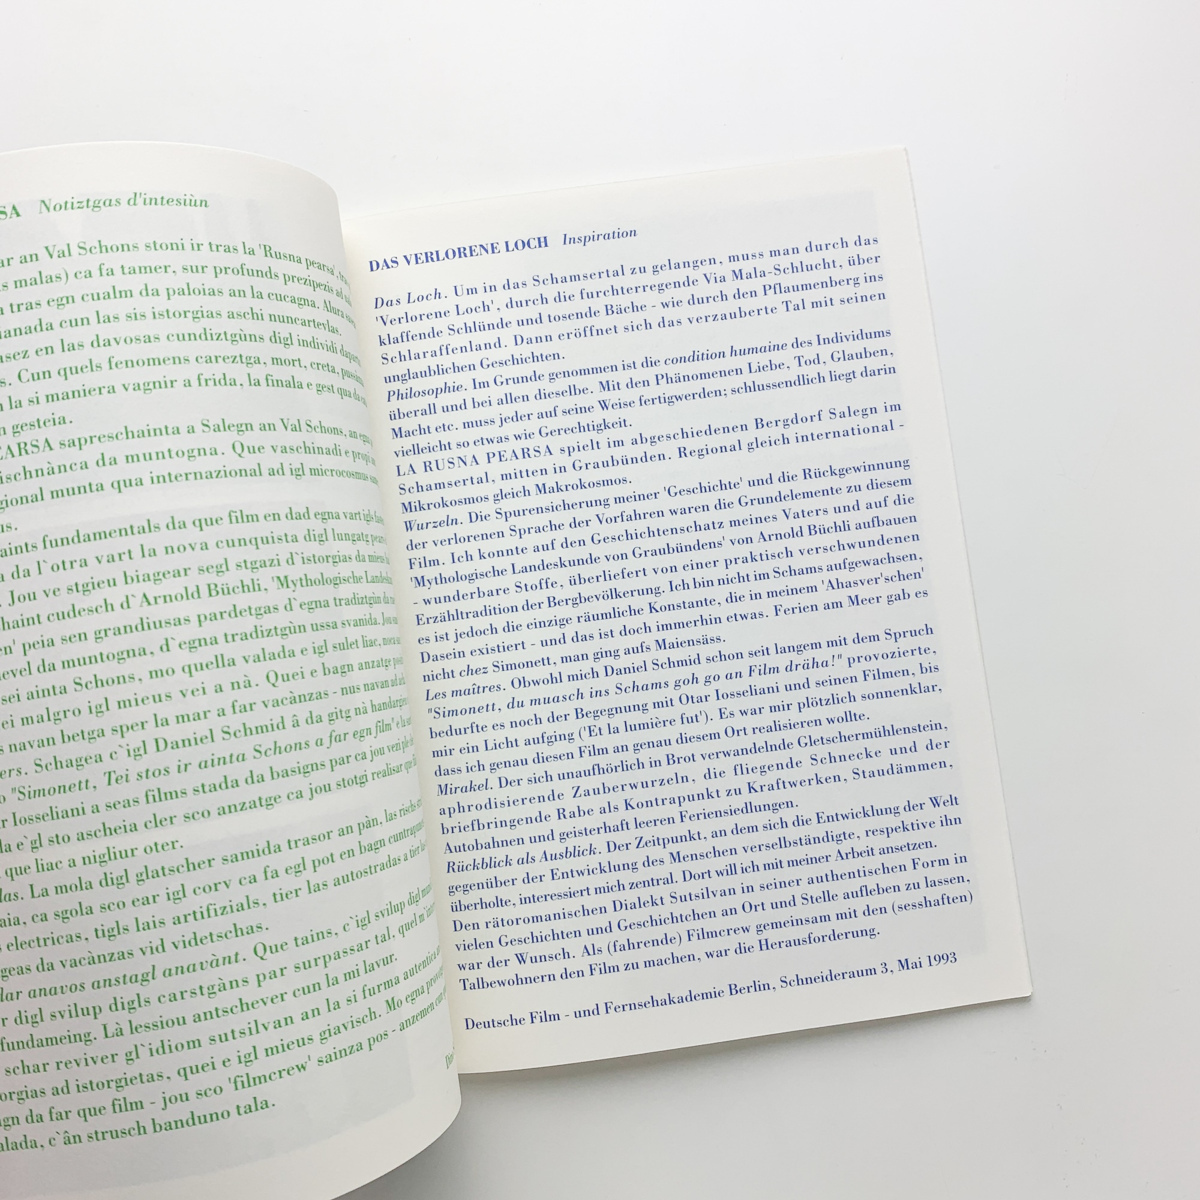 SA Notiztgas d'intesiùn
ar an Val Schons stoni ir tras la 'Rusna pearsa',
s malas) ca fa tamer, sur profunds prezipezis ad
n tras egn cualm da paloias an la cucagna. Alura
anada cun las sis istorgias aschi nuncartevlas.
asez en las davosas cundiztgùns digl individi
s. Cun quels fenomens careztga, mort, creta,
n la si maniera vagnir a frida, la finala e gest qua da
n gesteia.
EARSA sapreschainta a Salegn an Val Schons, an egn
ischnànca da muntogna. Que vaschinadi e
gional munta qua internazional ad igl microcosmus
us.
aints fundamentals da que film en dad egna vart igls
a da l`otra vart la nova cunquista digl lungatg
. Jou ve stgieu biagear segl stgazi d`istorgias da mieus
haint cudesch d`Arnold Büchli, 'Mythologische
en' peia sen grandiusas pardetgas d`egna tradiztgùn da
evel da muntogna, d`egna tradiztgùn ussa svanida. Jou
sei ainta Schons, mo quella valada e igl sulet liac,
ei malgro igl mieus vei a nà. Quei e bagn anzatge
s navan betga sper la mar a far vacànzas - nus navan
ers. Schagea c`igl Daniel Schmid â da gitg nà
o "Simonett, Tei stos ir ainta Schons a far egn film' e la
r Iosseliani a seas films stada da basigns par ca jou
la e`gl sto ascheia cler sco anzatge ca jou stotgi realisar que
que liac a nigliur oter.
las. La mola digl glatscher samida trasor an pân, las
aia, ca sgola sco ear igl corv ca fa egl pot en bagn
s electricas, tigls lais artifizials, tier las autostradas a tier
geas da vacànzas vid videtschas.
lar anavos anstagl anavànt. Que tains, c`igl svilup digl
r digl svilup digls carstgàns par surpassar tal, quel
fundameing. Là lessiou antschever cun la mi lavur.
schar reviver gl`idiom sutsilvan an la si furma autentica
orgias ad istorgietas, quei e igl mieus giavisch. Mo egna
gn da far que film - jou sco 'filmcrew' sainza pos - anzemen
alada, c`ân strusch banduno tala.
DAS VERLORENE LOCH Inspiration
Das Loch. Um in das Schamsertal zu gelangen, muss man durch das
'Verlorene Loch', durch die furchterregende Via Mala-Schlucht, über
klaffende Schlünde und tosende Bäche - wie durch den Pflaumenberg ins
Schlaraffenland. Dann eröffnet sich das verzauberte Tal mit seinen
unglaublichen Geschichten.
Philosophie. Im Grunde genommen ist die condition humaine des Individums
überall und bei allen dieselbe. Mit den Phänomenen Liebe, Tod, Glauben,
Macht etc. muss jeder auf seine Weise fertigwerden; schlussendlich liegt darin
vielleicht so etwas wie Gerechtigkeit.
LA RUSNA PEARSA spielt im abgeschiedenen Bergdorf Salegn im
Schamsertal, mitten in Graubünden. Regional gleich international -
Mikrokosmos gleich Makrokosmos.
Wurzeln. Die Spurensicherung meiner 'Geschichte' und die Rückgewinnung
der verlorenen Sprache der Vorfahren waren die Grundelemente zu diesem
Film. Ich konnte auf den Geschichtenschatz meines Vaters und auf die
'Mythologische Landeskunde von Graubündens' von Arnold Büchli aufbauen
- wunderbare Stoffe, überliefert von einer praktisch verschwundenen
Erzähltradition der Bergbevölkerung. Ich bin nicht im Schams aufgewachsen,
es ist jedoch die einzige räumliche Konstante, die in meinem 'Ahasver'schen'
Dasein existiert - und das ist doch immerhin etwas. Ferien am Meer gab es
nicht chez Simonett, man ging aufs Maiensäss.
Les maîtres. Obwohl mich Daniel Schmid schon seit langem mit dem Spruch
"Simonett, du muasch ins Schams goh go an Film dräha!" provozierte,
bedurfte es noch der Begegnung mit Otar Iosseliani und seinen Filmen, bis
mir ein Licht aufging ('Et la lumière fut'). Es war mir plötzlich sonnenklar,
dass ich genau diesen Film an genau diesem Ort realisieren wollte.
Mirakel. Der sich unaufhörlich in Brot verwandelnde Gletschermühlenstein,
aphrodisierende Zauberwurzeln, die fliegende Schnecke und der
briefbringende Rabe als Kontrapunkt zu Kraftwerken, Staudämmen,
Autobahnen und geisterhaft leeren Feriensiedlungen.
Rückblick als Ausblick. Der Zeitpunkt, an dem sich die Entwicklung der Welt
gegenüber der Entwicklung des Menschen verselbständigte, respektive ihn
überholte, interessiert mich zentral. Dort will ich mit meiner Arbeit ansetzen.
Den rätoromanischen Dialekt Sutsilvan in seiner authentischen Form in
vielen Geschichten und Geschichtchen an Ort und Stelle aufleben zu lassen,
war der Wunsch. Als (fahrende) Filmcrew gemeinsam mit den (sesshaften)
Talbewohnern den Film zu machen, war die Herausforderung.
Deutsche Film - und Fernsehakademie Berlin, Schneideraum 3, Mai 1993